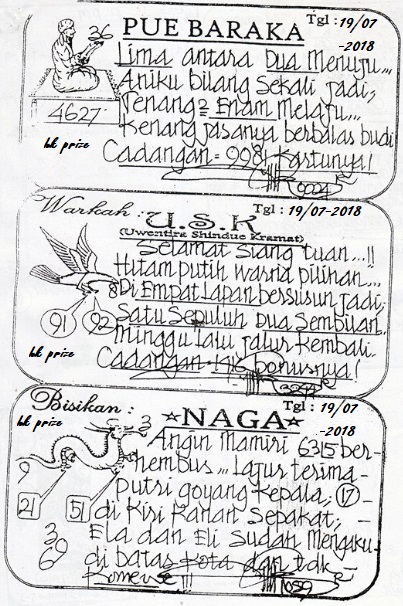 36
PUE BARAKA
Tgl : 19/07
-2018
Lima antara Dua Menuju...
Aniku bilang Sekali jadi,
Tenang2 Enam Melaju...
Kenang jasanya berbalas budi
Cadangan = 998 Kartunya!
4627
hk prize
Warkah :
U.S.K
(Uwentira Shindue Kramat)
Tgl : 19/07-2018
Selamat Siang tuan...!!
Hitam putih warna pilihan...
Di Empat Lapan bersusun jadi.
Satu Sepuluh Dua Sembilan
Minggu lalu jalur Kembali.
Cadangan bonusnya!
8
91
92
hk prize
Bisikan :
NAGA
Tgl : 19/07
-2018
hk prize
3
9
21
51
3
69
Angin Mamiri 6315 ber-
hembus... Lajur terima -
putri goyang Kepala, 17 -
di Kiri Kanan Sepakat,
Ela dan Eli Sudah Mengaku -
di batas Kota dan tdk -
Komerse !!!